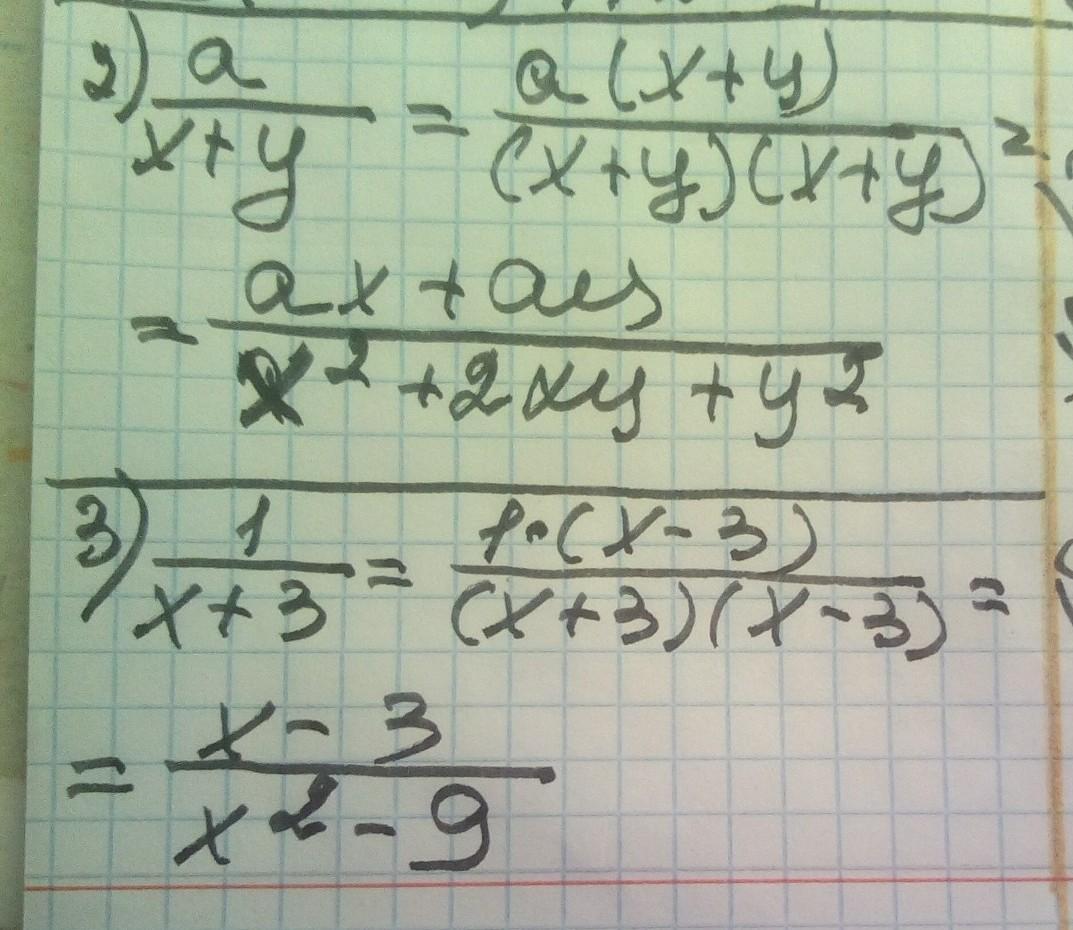 2) a/(x+y) = a(x+y)/((x+y)(x+y)) =
= (ax+ay)/(x²+2xy+y²)
3) 1/(x+3) = 1·(x-3)/((x+3)(x-3)) =
= (x-3)/(x²-9)